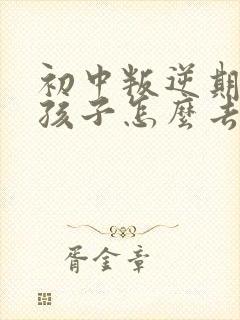 初中叛逆期
孩子怎麼去
胥金章